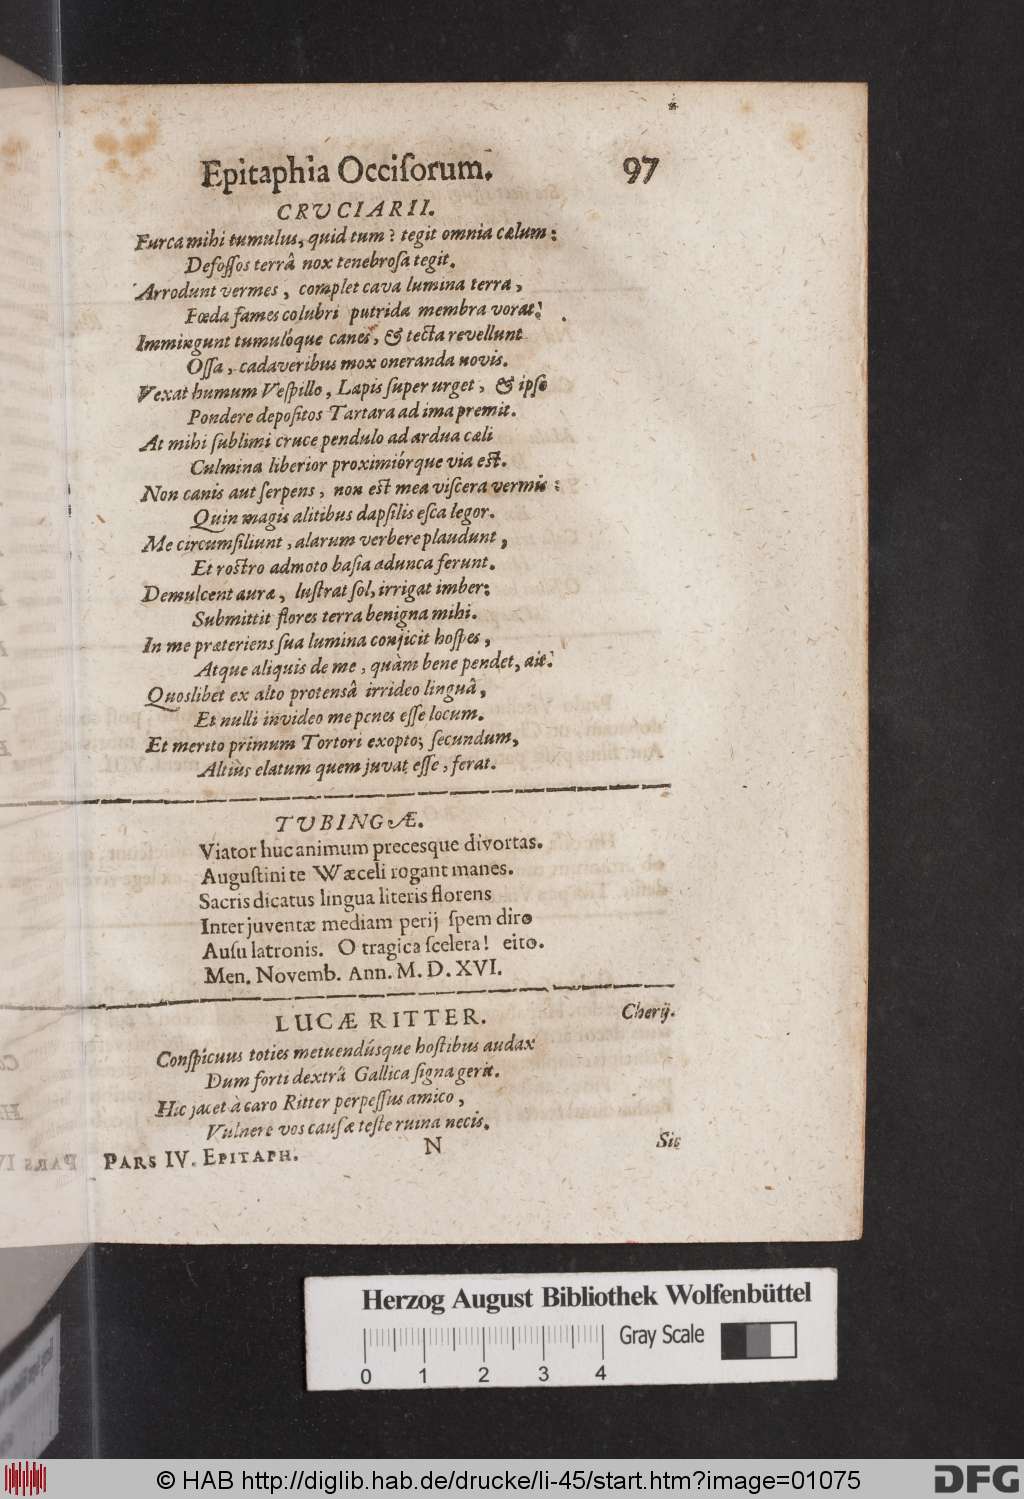 Epitaphia Occiſorum. 97
CRVCIARII.
Furca mihi tumulus, quid tum? tegit omnia cælum:
Defoſſos terrâ nox tenebroſa tegit.
Arrodunt vermes, complet cava lumina terra,
Fœda fames colubri putrida membra vorat.
Immingunt tumulóque canes, & tecta revellunt
Oſſa, cadaveribus mox oneranda novis.
Vexat humum Veſpillo, Lapis ſuper urget, & ipſo
Pondere depoſitos Tartara ad ima premit.
At mihi ſublimi cruce pendulo ad ardua cæli
Culmina liberior proximiórque via eſt.
Non canis aut ſerpens, non eſt mea viſcera vermis:
Quin magis alitibus dapſilis eſca legor.
Me circumſiliunt, alarum verbere plaudunt,
Et roſtro admoto baſia adunca ferunt.
Demulcent auræ, luſtrat ſol, irrigat imber:
Submittit flores terra benigna mihi.
In me præteriens ſua lumina conjicit hoſpes,
Atque aliquis de me, quàm bene pendet, ait.
Quoslibet ex alto protensâ irrideo linguâ,
Et nulli invideo me penes eſſe locum.
Et merito primum Tortori exopto; ſecundum,
Altiùs elatum quem juvat eſſe, ferat.
TVBINGÆ.
Viator huc animum precesque divortas.
Auguſtini te Wæceli rogant manes.
Sacris dicatus lingua literis florens
Inter juventæ mediam perij ſpem diro
Auſu latronis. O tragica ſcelera! eito.
Men. Novemb. Ann. M. D. XVI.
LUCÆ RITTER. Cherij.
Conſpicuus toties metuendúsque hoſtibus audax
Dum forti dextrâ Gallica ſigna gerit.
Hic jacet à caro Ritter perpeſſus amico,
Vulnere vos cauſæ teſte ruina necis.
PARS IV. EPITAPH. N Sic
Herzog August Bibliothek Wolfenbüttel
Gray Scale
0 1 2 3 4
© HAB http://diglib.hab.de/drucke/li-45/start.htm?image=01075
DFG